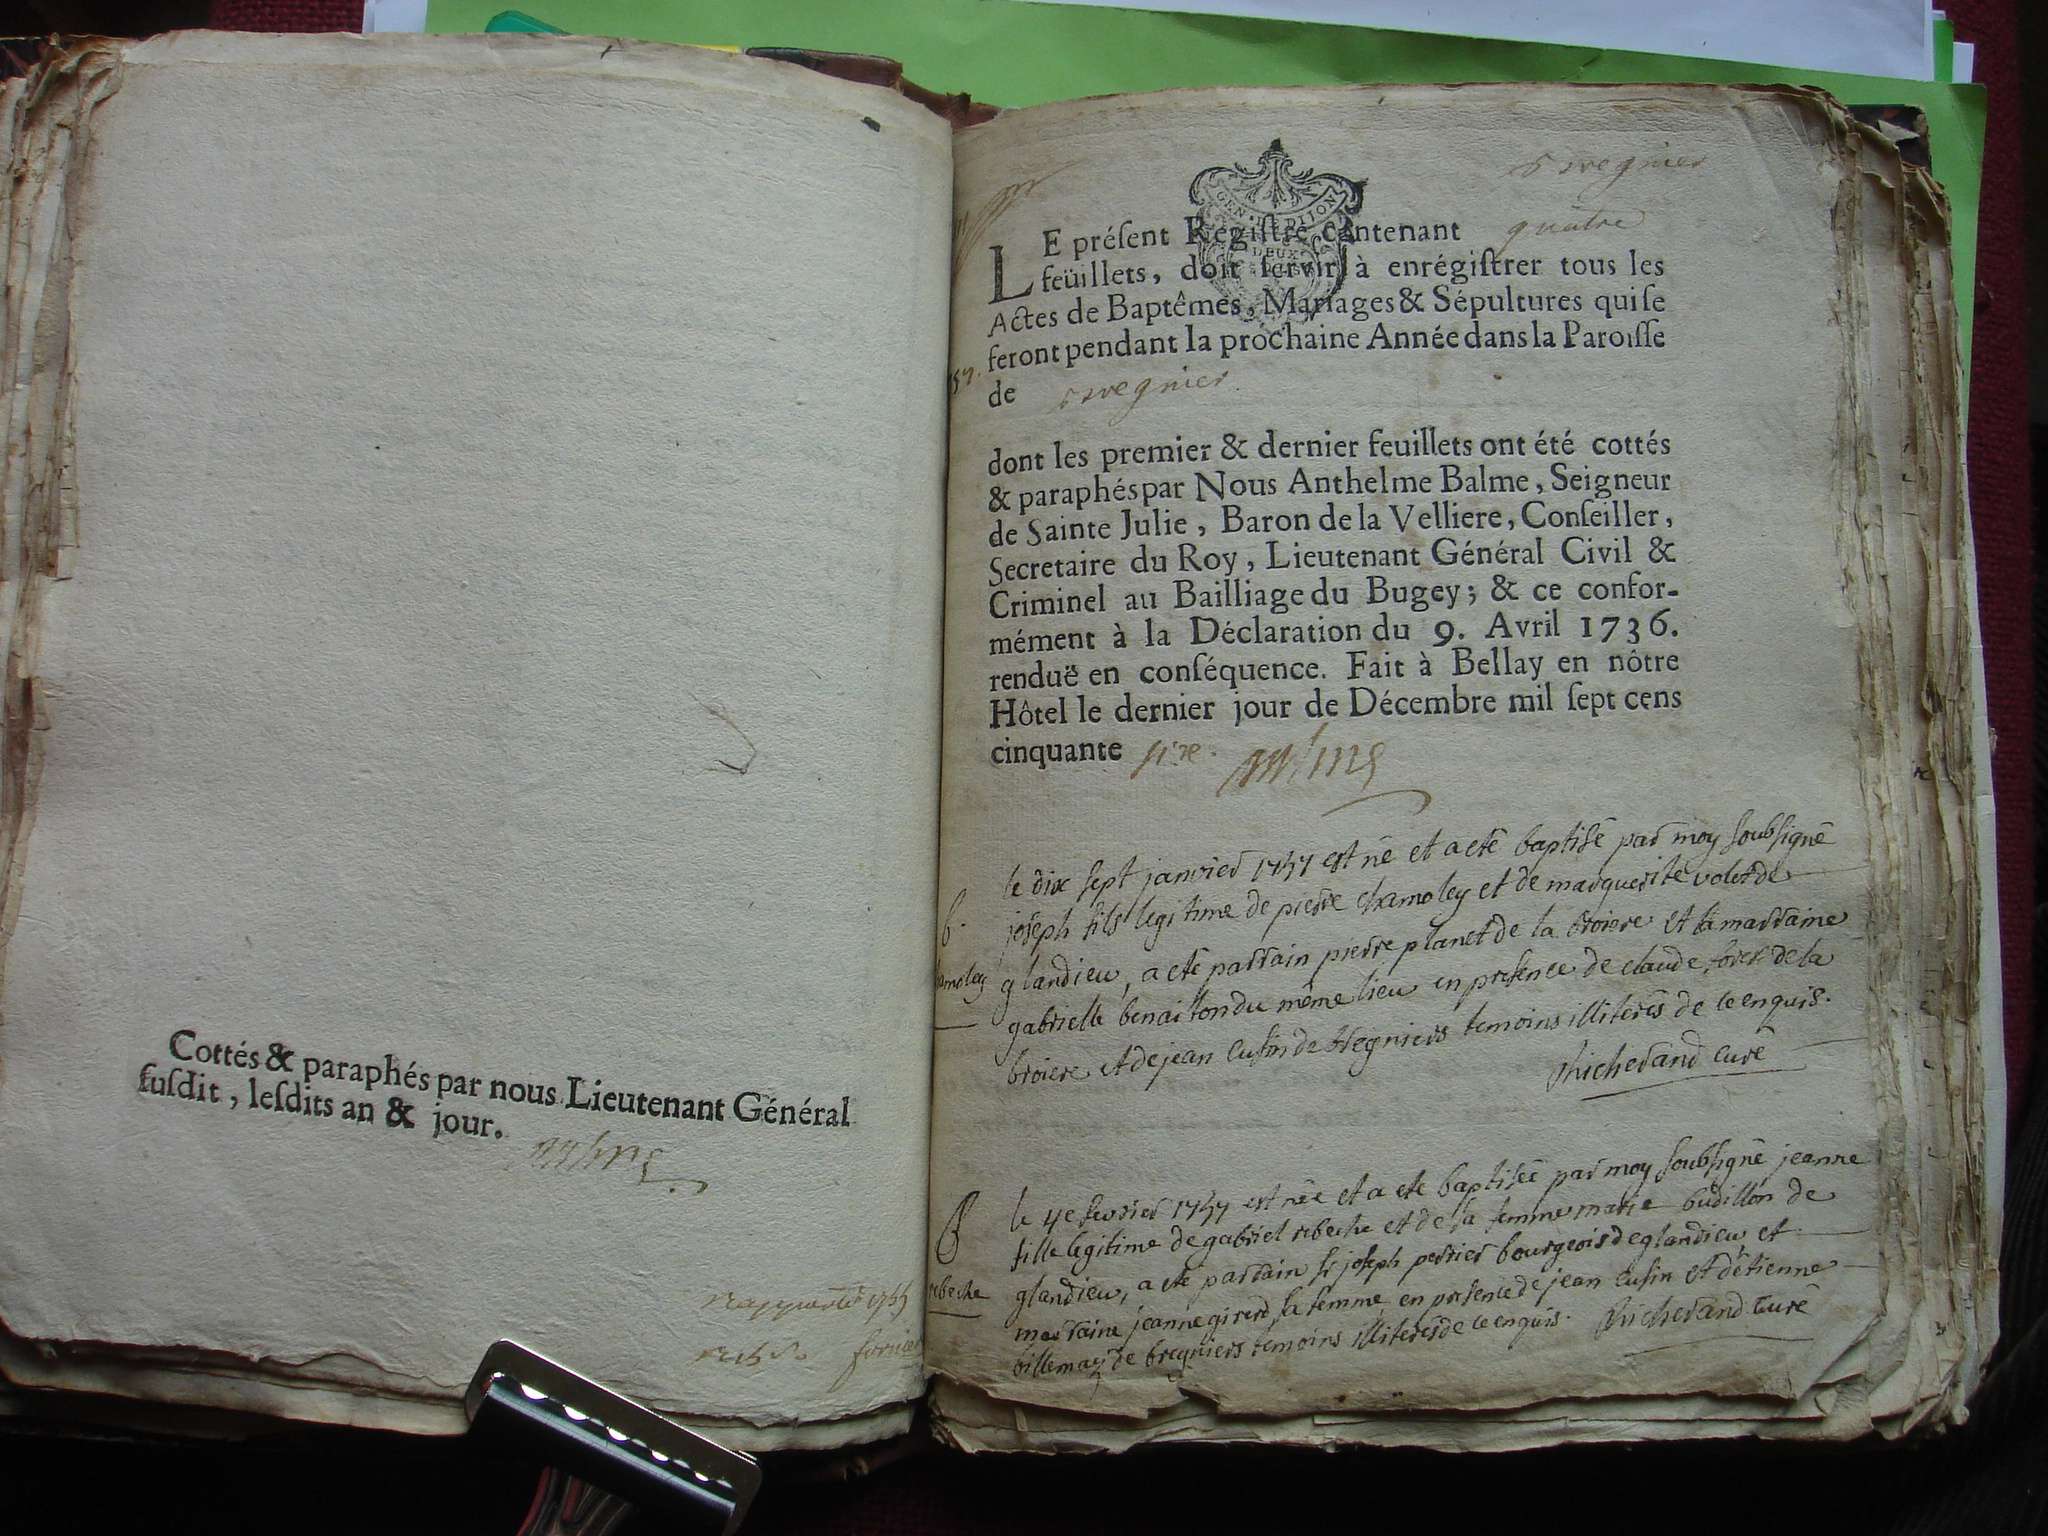 Cottés & paraphés par nous Lieutenant Général
ſuſdit, leſdits an & jour.
1755
GEN. DE DIJON
DEUX
bregnier
LE préſent Regiſtre contenant quatre
feüillets, doit ſervir à enrégiſtrer tous les
Actes de Baptêmes, Mariages & Sépultures qui ſe
feront pendant la prochaine Année dans la Paroiſſe
de bregnier.
dont les premier & dernier feuillets ont été cottés
& paraphés par Nous Anthelme Balme, Seigneur
de Sainte Julie, Baron de la Velliere, Conſeiller,
Secretaire du Roy, Lieutenant Général Civil &
Criminel au Bailliage du Bugey; & ce confor-
mément à la Déclaration du 9. Avril 1736.
renduë en conſéquence. Fait à Bellay en nôtre
Hôtel le dernier jour de Décembre mil ſept cens
cinquante ſize.
b.
le dix sept janvier 1757 est né et a eté baptisé par moy soubsigné
joseph fils legitime de pierre chamoley et de marguerite volet de
glandieu, a eté parrain pierre planet de la broiere et la marraine
gabrielle benaiton du même lieu en presence de claude de la
broiere et de jean cusin de bregniers temoins illiterés de ce enquis.
Richerand curé
B
rebeche
le 4e fevrier 1757 est née et a eté baptisée par moy soubsigné jeanne
fille legitime de gabriel rebeche et de sa femme marie budillon de
glandieu, a eté parrain sr joseph perrier bourgeois de glandieu et
marraine jeanne girerd sa femme, en presence de jean cusin et d'etienne
billemaz de bregniers temoins illiterés de ce enquis. Richerand curé